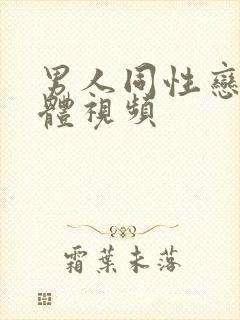 男人同性戀
體視頻
霜葉未落